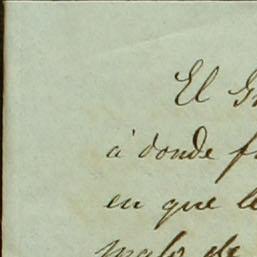 El
á donde
en que
malo de